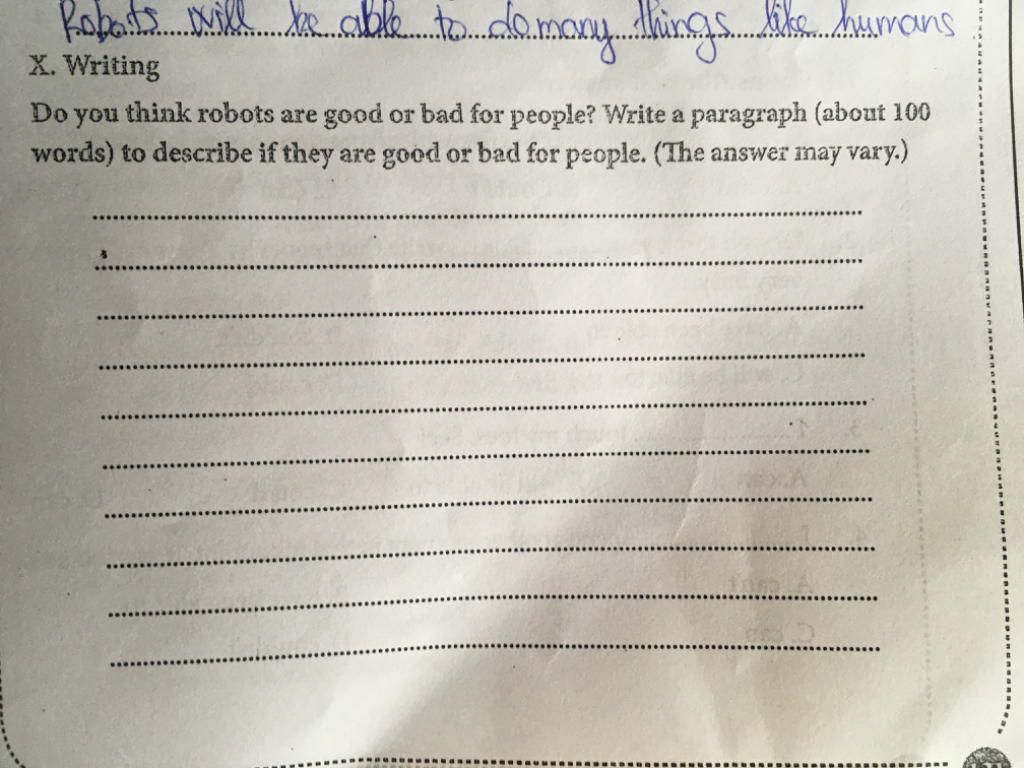 Robots will be able to do many things like humans
X. Writing
Do you think robots are good or bad for people? Write a paragraph (about 100
words) to describe if they are good or bad for people. (The answer may vary.)